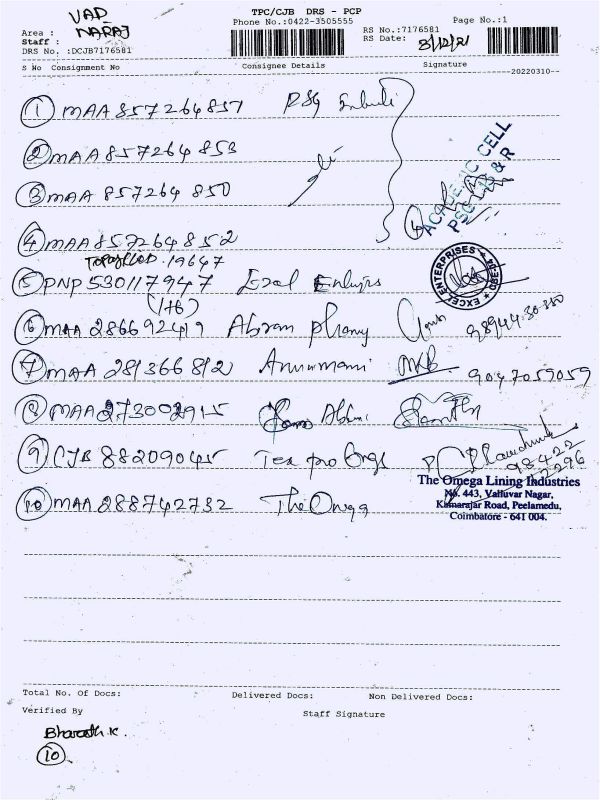 VAD
NARAJ
TPC/CJB DRS - PCP
Phone No.:0422-3505555
Page No.:1
Area :
Staff :
DRS No. :DCJB7176581
RS No.:7176581
RS Date: 8/12/21
S No Consignment No Consignee Details Signature
20220310
1 MAA 857264857 PSG
2 MAA 857264853
3 MAA 857264850
ACADEMIC CELL
PSG & R
4 MAA 857264852
19647
5 PNP 530117947
EXCEL ENTERPRISES
(1+6)
6 MAA 286692419 Abram 98944-30-350
7 MAA 281366812 9047059059
8 MAA 273002915
9 CJB 88209045 Tex pro Engs
98422
42296
10 MAA 288742732 The Omega
The Omega Lining Industries
No. 443, Valluvar Nagar,
Kamarajar Road, Peelamedu,
Coimbatore - 641 004.
Total No. Of Docs: Delivered Docs: Non Delivered Docs:
Verified By Staff Signature
Bharath.K
10